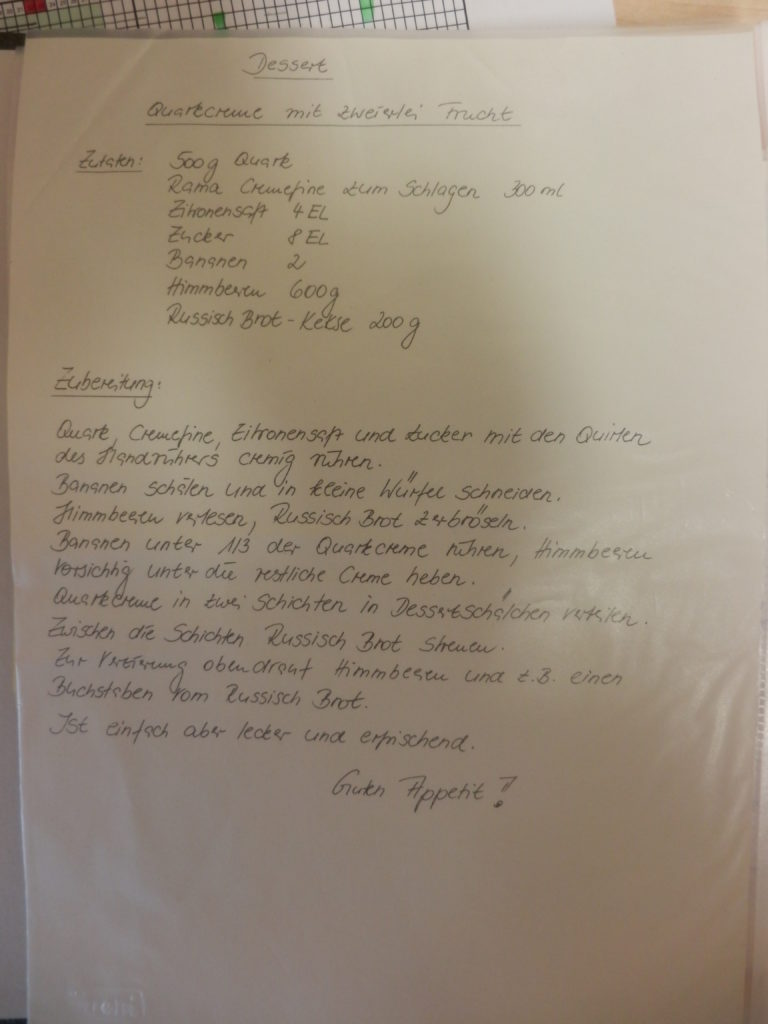 Dessert
Quarkcreme mit zweierlei Frucht
Zutaten: 500g Quark
Rama Cremefine zum Schlagen 300 ml
Zitronensaft 4 EL
Zucker 8 EL
Bananen 2
Himmbeeren 600g
Russisch Brot - Kekse 200 g
Zubereitung:
Quark, Cremefine, Zitronensaft und Zucker mit den Quirlen
des Handrührers cremig rühren.
Bananen schälen und in kleine Würfel schneiden.
Himmbeeren verlesen, Russisch Brot zerbröseln.
Bananen unter 1/3 der Quarkcreme rühren, Himmbeeren
vorsichtig unter die restliche Creme heben.
Quarkcreme in zwei Schichten in Dessertschälchen verteilen.
Zwischen die Schichten Russisch Brot streuen.
Zur Verzierung obendrauf Himmbeeren und z.B. einen
Buchstaben vom Russisch Brot.
Ist einfach aber lecker und erfrischend.
Guten Appetit!